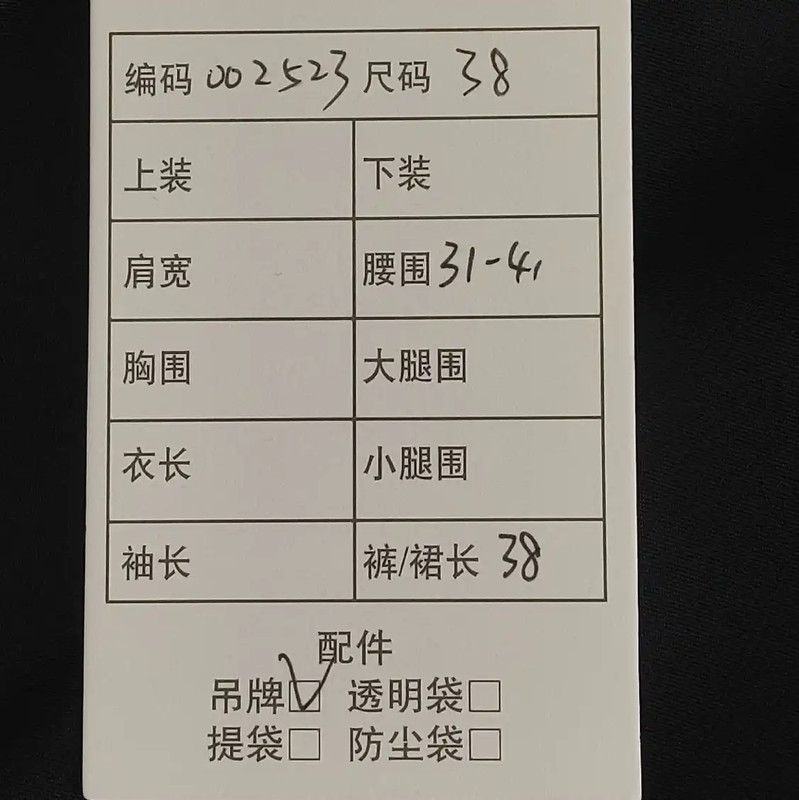 编码 002523 尺码 38
上装 下装
肩宽 腰围 31-41
胸围 大腿围
衣长 小腿围
袖长 裤/裙长 38
配件
吊牌☑ 透明袋☐
提袋☐ 防尘袋☐